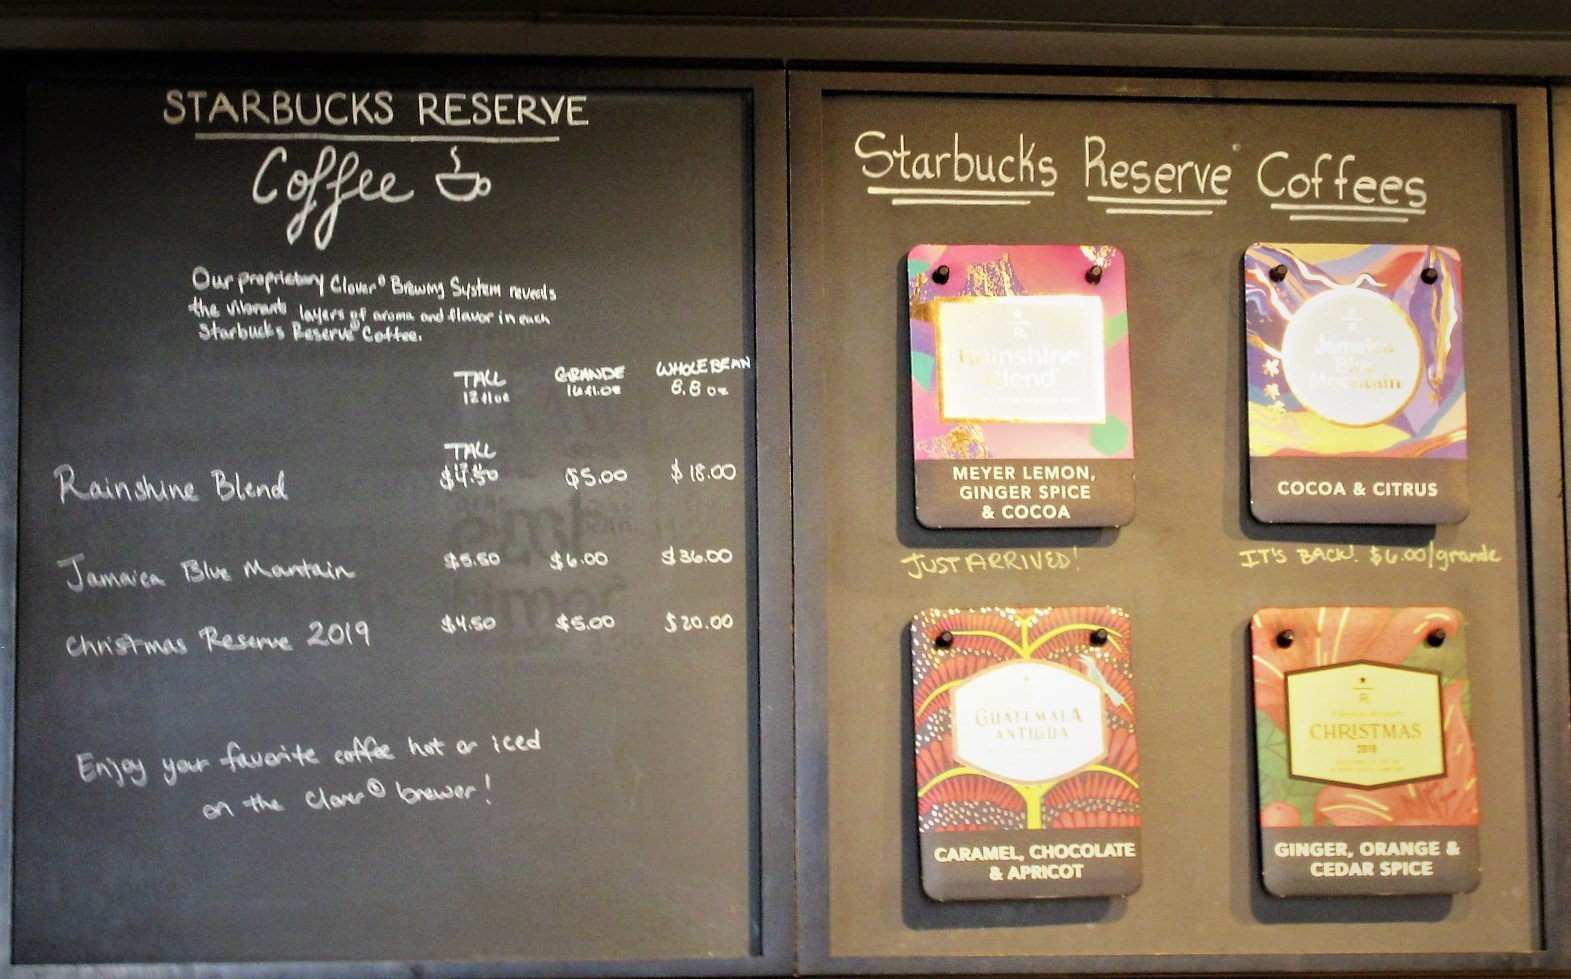 STARBUCKS RESERVE
Coffee
Our proprietary Clover® Brewing System reveals
the vibrant layers of aroma and flavor in each
Starbucks Reserve® Coffee.
TALL GRANDE WHOLE BEAN
12 fl oz 16 fl oz 8.8 oz
TALL
Rainshine Blend $4.50 $5.00 $18.00
Jamaica Blue Mountain $5.50 $6.00 $36.00
Christmas Reserve 2019 $4.50 $5.00 $20.00
Enjoy your favorite coffee hot or iced
on the Clover® brewer!
Starbucks Reserve® Coffees
R.
Rainshine
Blend
MEYER LEMON,
GINGER SPICE
& COCOA
JUST ARRIVED!
R.
Jamaica
Blue
Mountain
COCOA & CITRUS
IT'S BACK! $6.00/grande
GUATEMALA
ANTIGUA
CARAMEL, CHOCOLATE
& APRICOT
R.
CHRISTMAS
2019
GINGER, ORANGE &
CEDAR SPICE